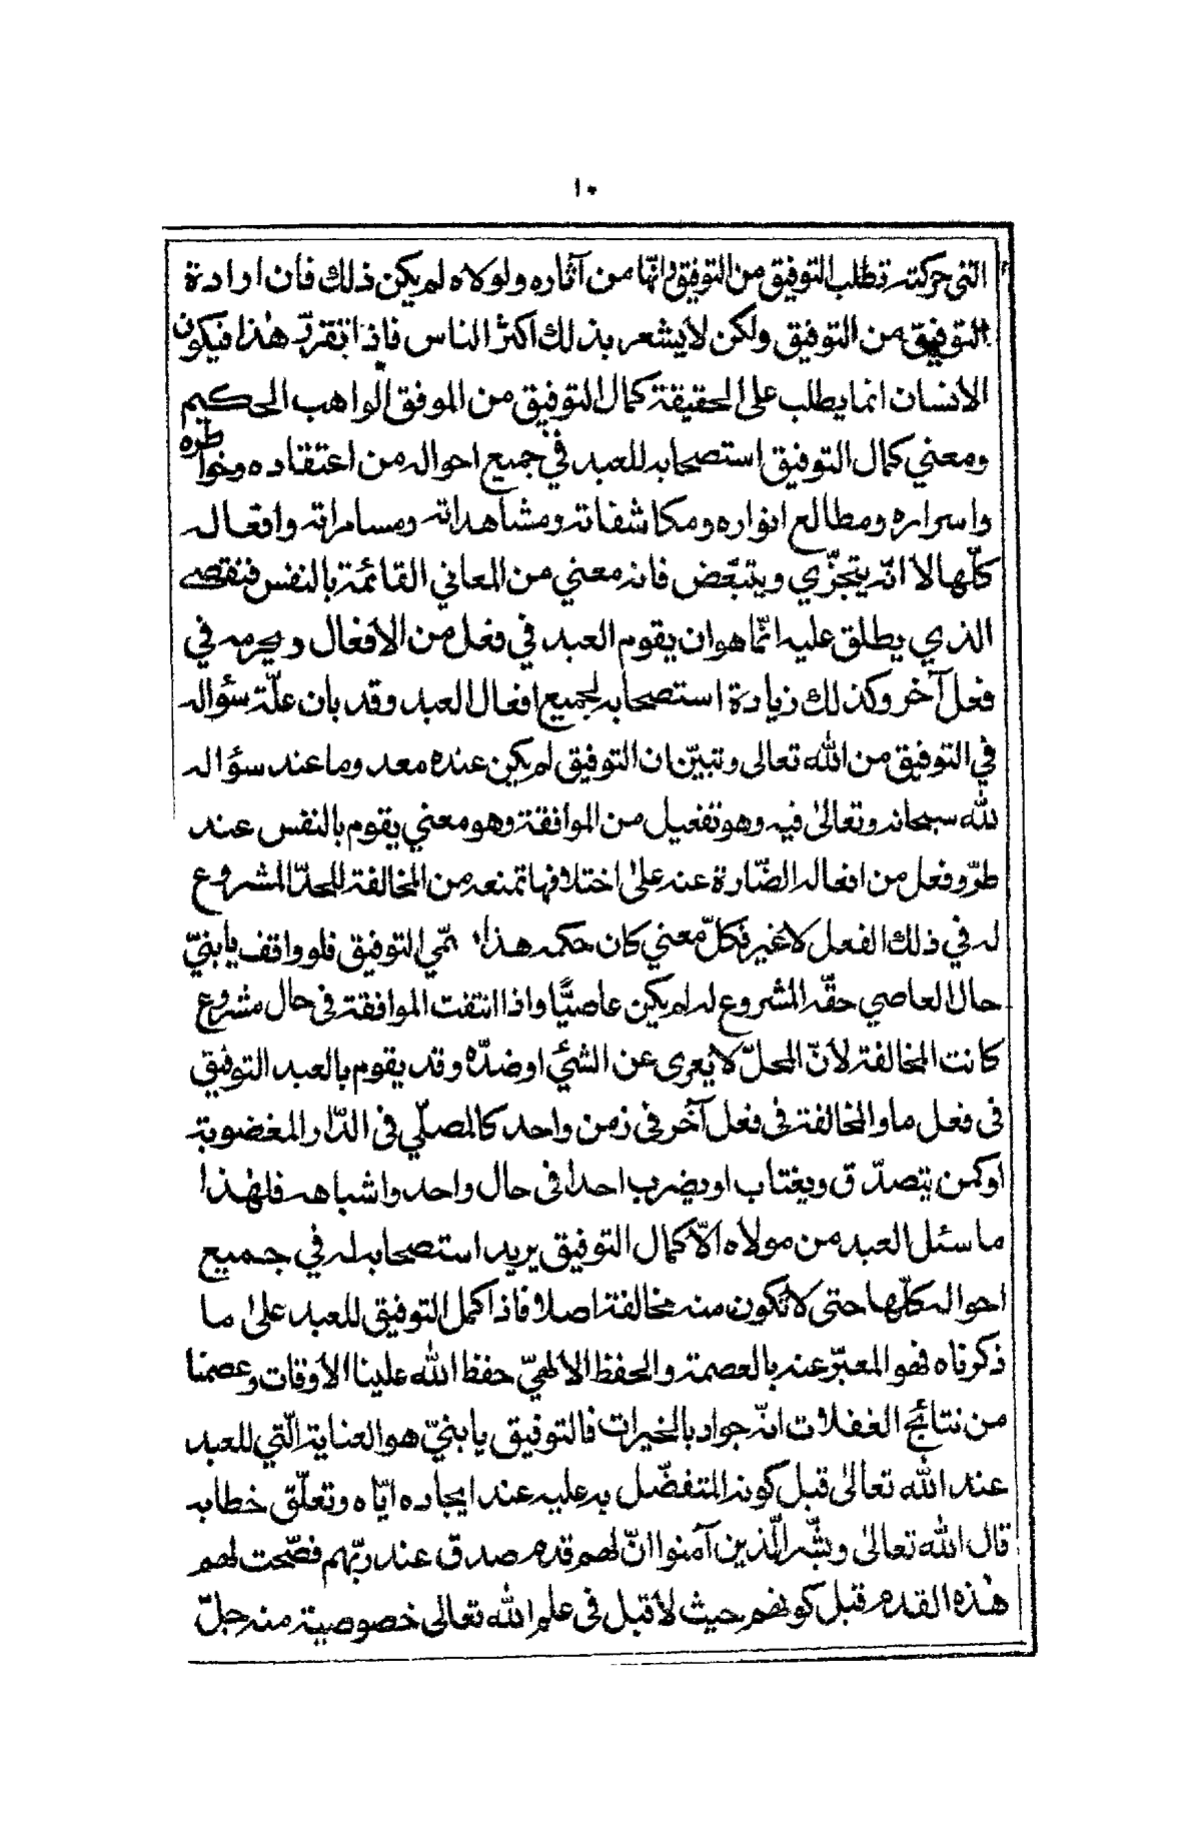 ١٠
التي حركته تطلب التوفيق من التوفيق وانّها من آثاره ولولاه لم يكن ذلك فان ارادة
التوفيق من التوفيق ولكن لا يشعر بذلك اكثر الناس فاذا تقرّر هٰذا فيكون
الانسان انما يطلب على الحقيقة كمال التوفيق من الموفق الواهب الحكيم
ومعني كمال التوفيق استصحابه للعبد في جميع احواله من اعتقاده وخواطره
واسراره ومطالع انواره ومكاشفاته ومشاهداته ومسامراته وافعاله
كلّها لا انّه يتجزّي ويتبعّض فانه معني من المعاني القائمة بالنفس فنقصه
الذي يطلق عليه انّما هو ان يقوم العبد في فعل من الافعال ويحرمه في
فعل آخر وكذلك زيادة استصحابه لجميع افعال العبد وقد بان علّة سؤاله
في التوفيق من الله تعالى وتبيّن ان التوفيق لم يكن عنده معد وما عند سؤاله
لله سبحانه وتعالىٰ فيه وهو تفعيل من الموافقة وهو معني يقوم بالنفس عند
طرّو فعل من افعاله الصّارة عنه علىٰ اختلافها تمنعه من المخالفة للحدّ المشروع
له في ذلك الفعل لا غير فكلّ معني كان حكمه هذا سمّي التوفيق فلو وافق يا بنيّ
حال العاصي حقّه المشروع له لم يكن عاصيًّا واذا انتفت الموافقة فى حال مشروع
كانت المخالفة لانّ المحلّ لا يعرى عن الشئ او ضدّه وقد يقوم بالعبد التوفيق
فى فعل ما والمخالفة فى فعل آخر فى زمن واحد كالمصلّي فى الدّار المغضوبة
او كمن يتصدّق ويغتاب او يضرب احدا فى حال واحد واشباهه فلهٰذا
ما سئل العبد من مولاه الاّ كمال التوفيق يريد استصحابه له في جميع
احواله كلّها حتى لا تكون منه مخالفة اصلا فاذا كمل التوفيق للعبد علىٰ ما
ذكرناه فهو المعبّر عنه بالعصمة والحفظ الالهيّ حفظ الله علينا الاوقات وعصمنا
من نتائج الغفلات انّه جواد بالخيرات فالتوفيق يا بنيّ هو العناية الّتي للعبد
عند الله تعالىٰ قبل كونه المتفضّل به عليه عند ايجاده ايّاه وتعلّق خطابه
قال الله تعالىٰ وبشّر الّذين آمنوا انّ لهم قدم صدق عند ربّهم فصّحت لهم
هٰذه القدم قبل كونهم حيث لا قبل فى علم الله تعالى خصوصية منه جلّ